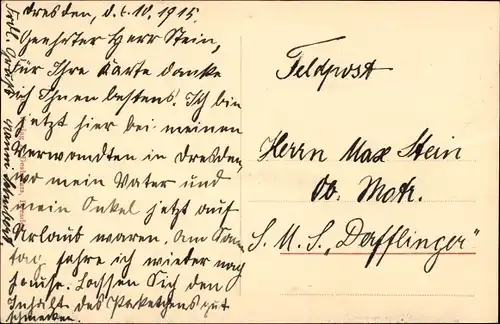 Dresden, d. 6.10.1915.
Geehrter Herr Stein,
Für Ihre Karte danke
ich Ihnen bestens. Ich bin
jetzt hier bei meinen
Verwandten in Dresden,
wo mein Vater und
mein Onkel jetzt auf
Urlaub waren. Am Sonn
tag fahre ich wieder nach
hause. Lassen Sich den
Inhalt des Paketchens gut
schmecken.
Frdl. Grüße
Feldpost
Herrn Max Stein
Ob. Matr.
S. M. S. „Dafflinger"